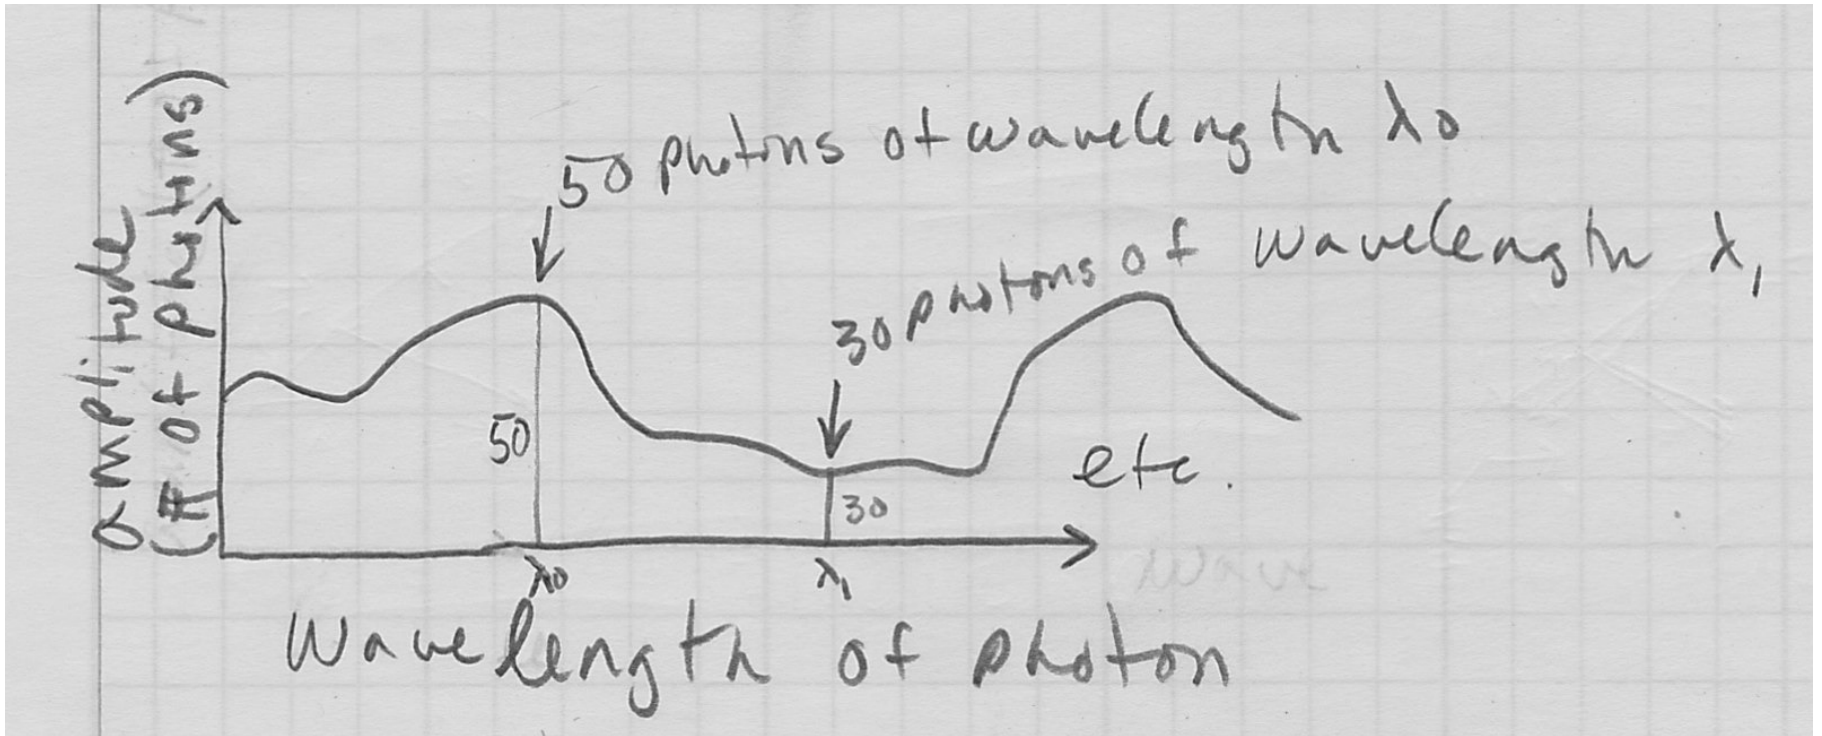 amplitude
(# of photons)
50 photons of wavelength λ0
30 photons of wavelength λ1
50
30
etc.
λ0
λ1
wave
wavelength of photon